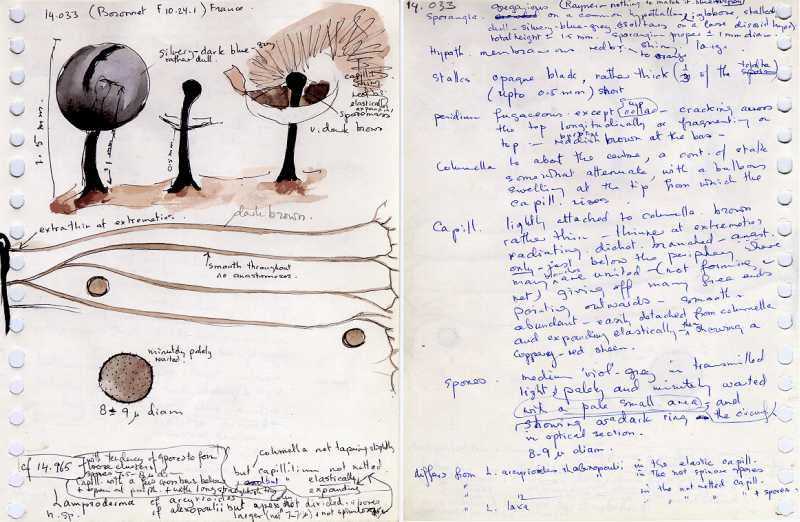 14.033 (Bozonnet F 10.24.1) France
silvery-dark blue-grey
rather dull.
1.5 mm
1 mm
0.5 mm
capill.
elastically
expanding
sporomass
v. dark brown
extra thin at extremeties.
dark brown.
smooth throughout
no anastomoses.
minutely palely
warted.
8-9 µ diam
cf 14.965
with tendency of spores to form
loose clusters
spores 7.5-8 µ diam
Capill. with a few cross bars below
+ open at periph. + with long free ends
Lamproderma cf arcyrioides
n. sp. cf alexopoulii but spores not divided. spores
larger (not 7-7 µ) + not spinulose
columella not tapering slightly
but capillitium not netted
but elastically
expanding
14.033
Gregarious (Rayner - nothing to match it
Sporangia. on a common hypothallus, globose stalked
dull-silvery-blue-grey
total height ± 1.5 mm - sporangia proper ± 1 mm diam.
Hypoth. membranous redbr. shiny, larg.
to
stalks opaque black, rather thick (1/3 of the total ht
(up to 0.5 mm) short
peridium fugaceous except collar - cracking across
the top longitudinally or fragmenting on
top - reddish brown at the bas -
Columella to about the centre, a cont. of stalk
somewhat attenuate, with a bulbous
swelling at the tip from which the
capill. rises.
Capill. lightly attached to columella. brown
rather thin - thinner at extremeties
radiating dichot. branched - anast.
only just below the periphery where
many are united - (not forming a
net), giving off many free ends
pointing outwards - smooth -
abundant - easily detached from columella
and expanding elastically - showing a
coppery-red sheen.
Spores medium 'viol'-grey in transmitted
light, palely and minutely warted
with a pale small area, and
showing a dark ring the circumf.
in optical section.
8-9 µ diam.
differs from L. arcyrioides in the elastic capill.
" in the not spinose spores
" in the not netted capill.
" L. laxa " " " " spores.